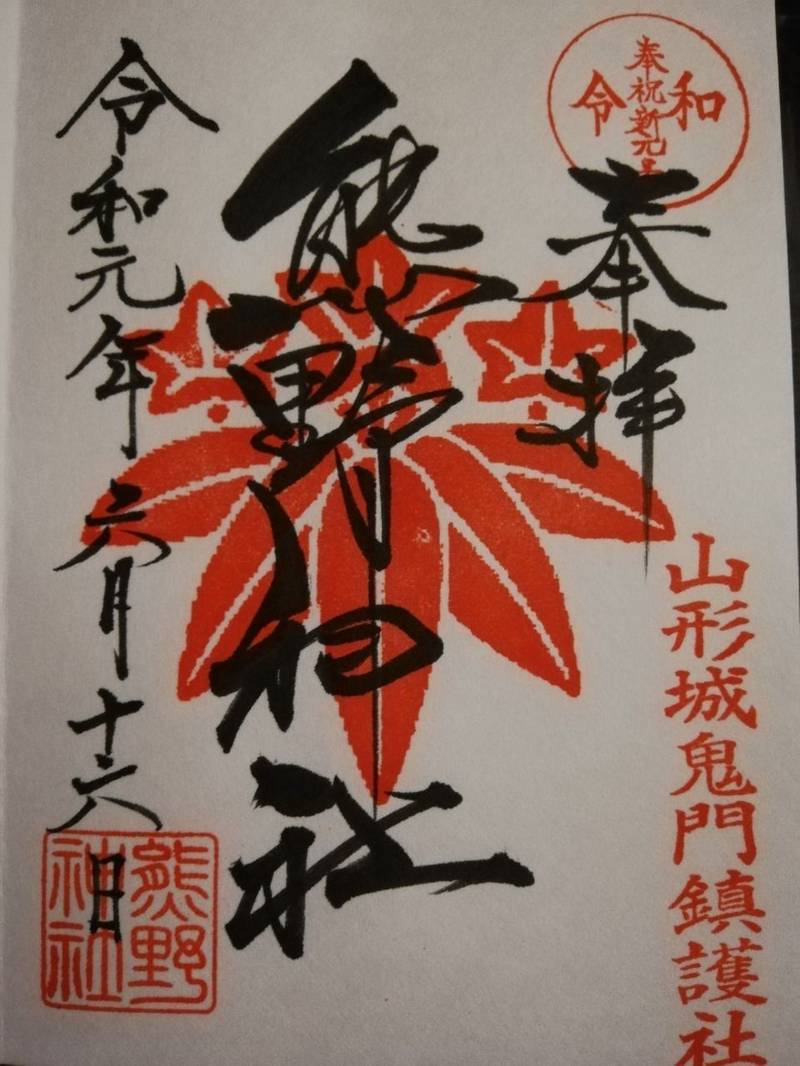 令和
奉祝新元号
奉拝
山形城鬼門鎮護社
熊野神社
令和元年六月十六日
熊野
神社